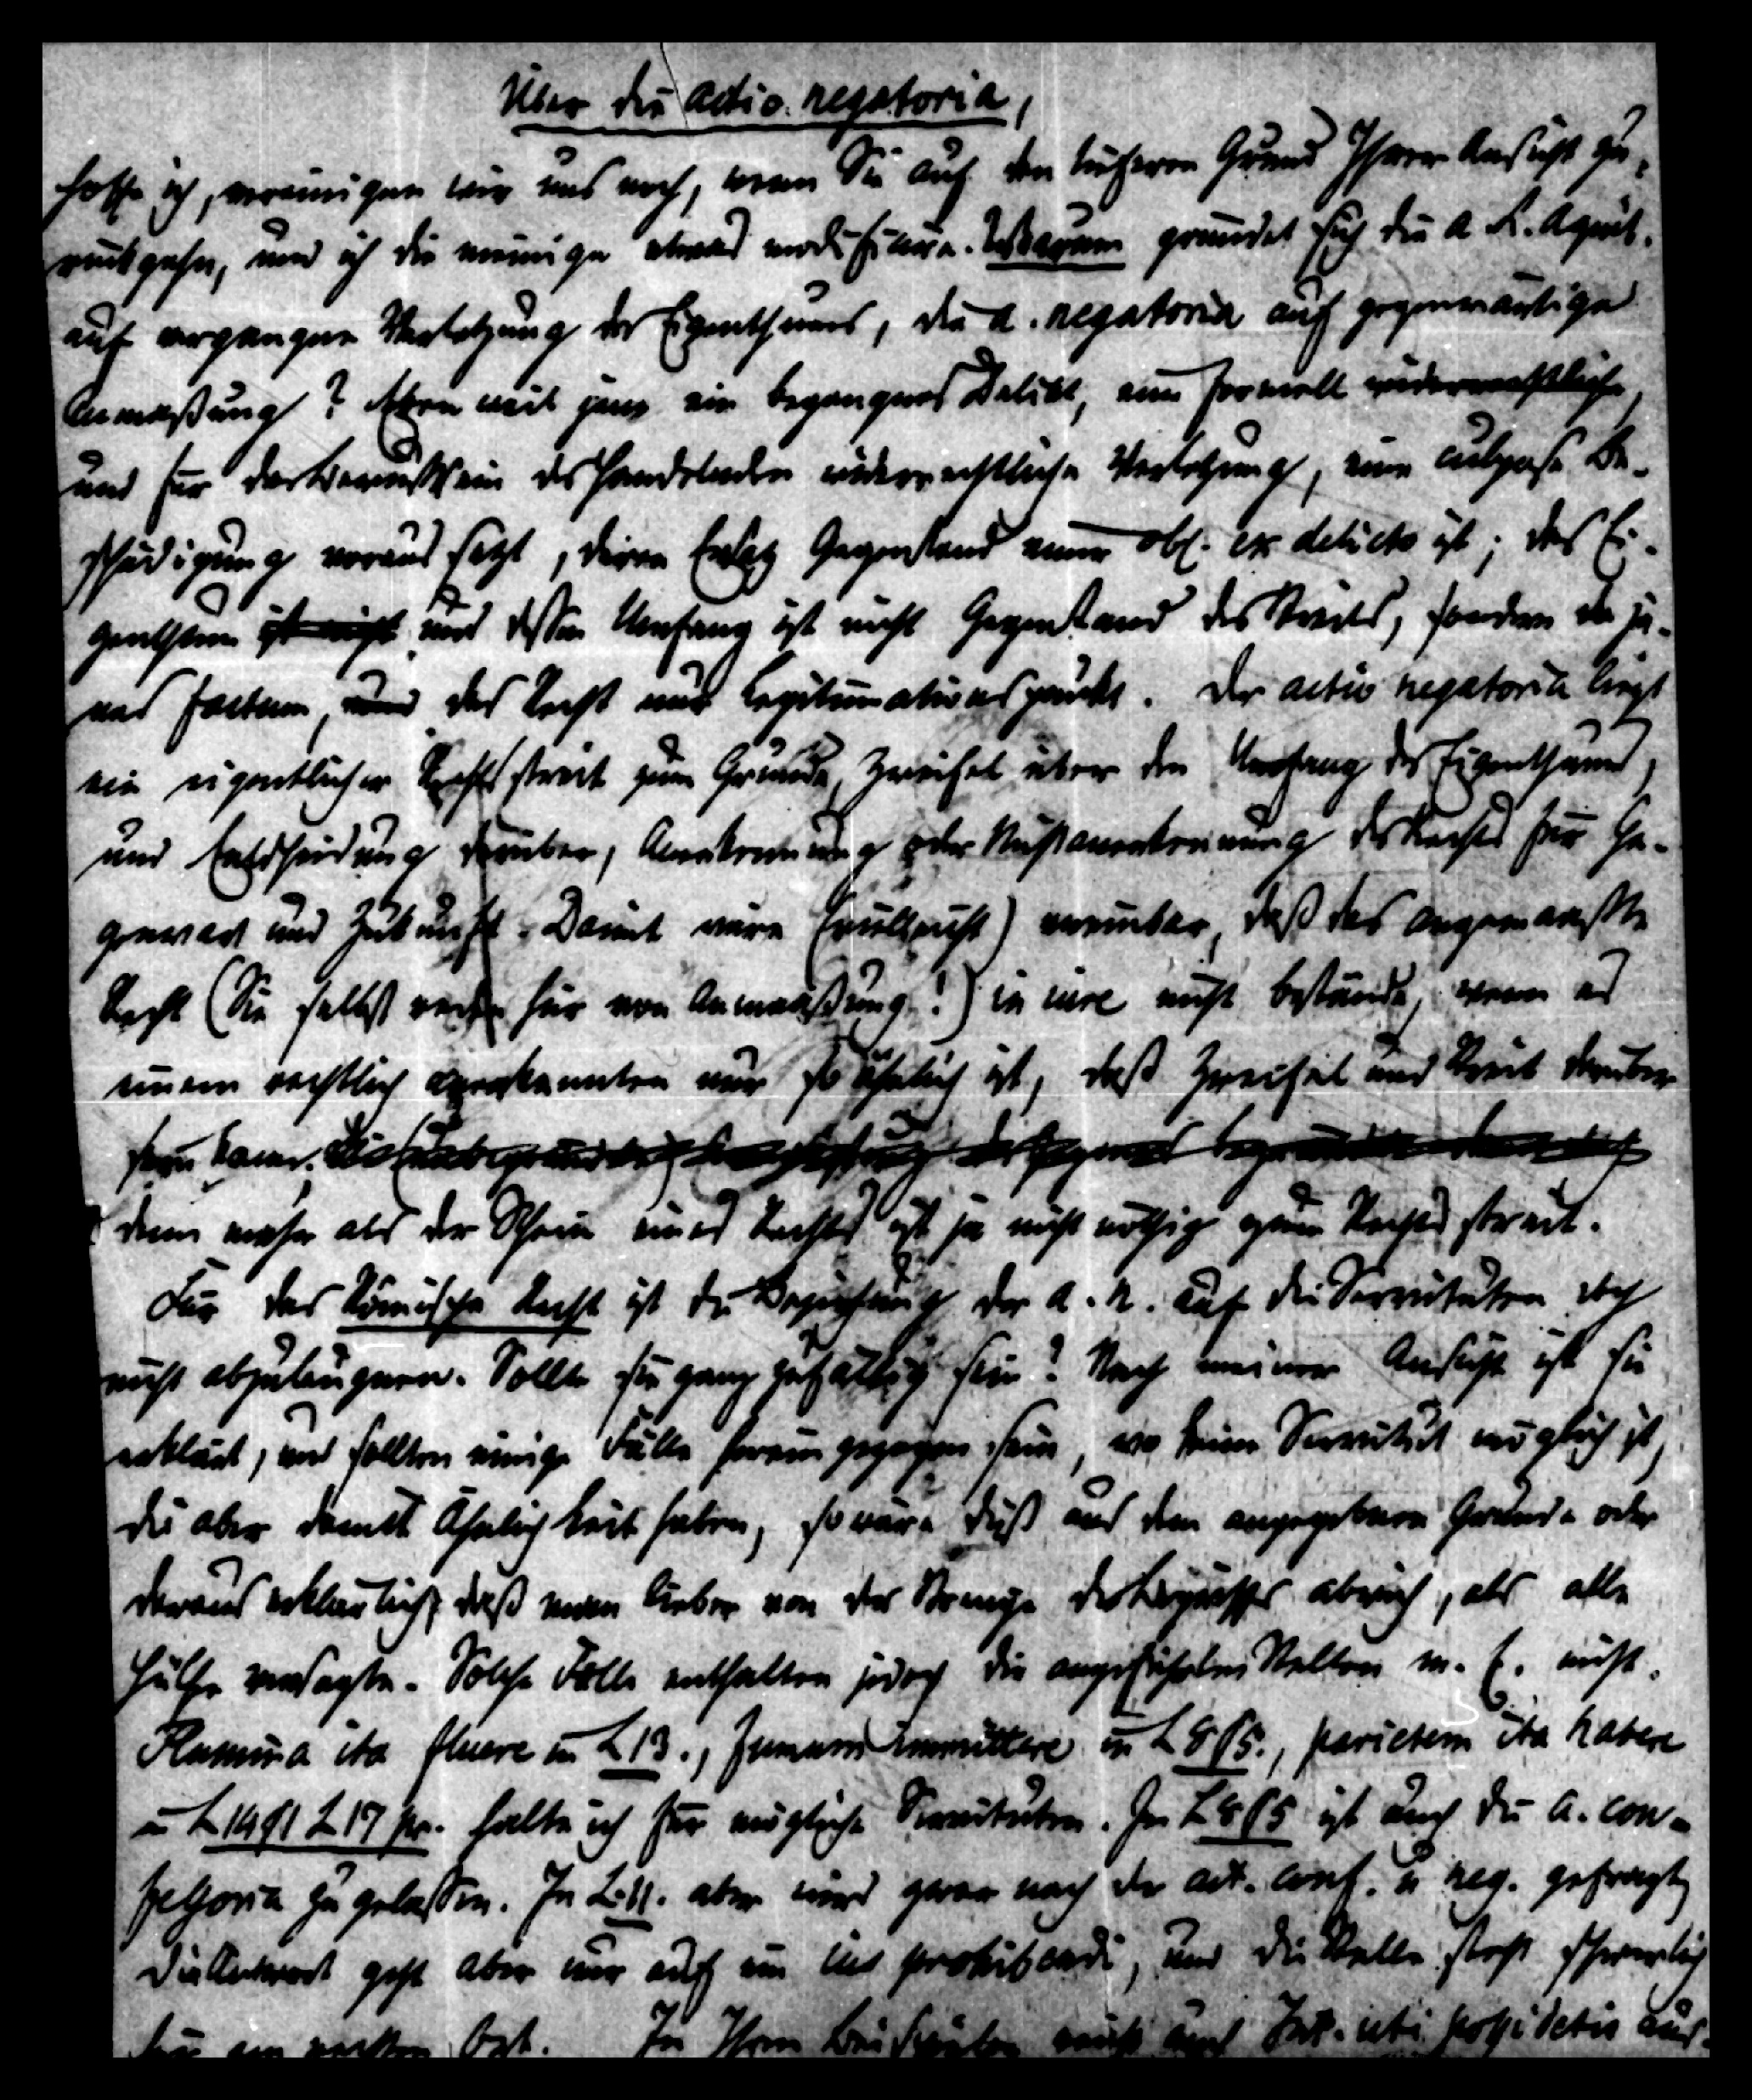 Über die actio negatoria,
hoffe ich, vereinigen wir uns noch, wenn Sie auf den tieferen Grund Ihrer Ansicht zu-
rückgehn, und ich die meinige etwas modificire. Warum gründet sich die a. L. Aquil.
auf vergangne Verletzung des Eigenthums, die a. negatoria auf gegenwärtige
Anmaßung? Eben weil jene ein begangnes Delikt, eine formell widerrechtliche,
und für das Bewußtsein des Handelnden widerrechtliche Verletzung, eine culpose Be-
schädigung voraus setzt, deren Ersatz Gegenstand einer obl. ex delicto ist; das Ei-
genthum ist nicht und dessen Umfang ist nicht Gegenstand des Streits, sondern je-
nes factum, und das Recht nur Legitimationspunkt. Der actio negatoria liegt
ein eigentlicher Rechtsstreit zum Grunde, Zweifel über den Umfang des Eigenthums,
und Entscheidung darüber, Anerkennung oder Nichtanerkennung des Rechts für Ge-
genwart und Zukunft. Damit wäre (vielleicht) vereinbar, daß das angemaßte
Recht (Sie selbst reden hier von Anmaaßung!) in iure nicht bestände, wenn es
einem rechtlich anerkannten nur so ähnlich ist, daß Zweifel und Streit darüber
sein kann,
denn mehr als der Schein eines Rechts ist ja nicht nöthig zum Rechtsstreit.
Für das Römische Recht ist die Beziehung der a. n. auf die Servituten doch
nicht abzuläugnen. Sollte sie ganz zufällig sein? Nach meiner Ansicht ist sie
erklärt, und sollten einige Fälle herein gezogen sein, wo keine Servitut möglich ist,
die aber damit Ähnlichkeit haben, so wäre dieß aus dem angegebenen Grunde oder
daraus erklärlich, daß man lieber von der Strenge des Begriffs abwich, als alle
Hülfe versagte. Solche Fälle enthalten jedoch die angeführten Stellen m. E. nicht.
Flumina ita fluere in L 13., fumum immittere in L 8 §5., parietem ita habere
in L 14 §1 L 17 pr. halte ich für mögliche Servituten. In L 8 §5 ist auch die a. con-
fessoria zugelassen. In L. 11. aber wird zwar nach der act. conf. u neg. gefragt,
die Antwort geht aber nur auf ein ius prohibendi, und die Stelle steht schwerlich
hier am rechten Ort. In Ihren Beispielen muß auch Int. uti possidetis aus-